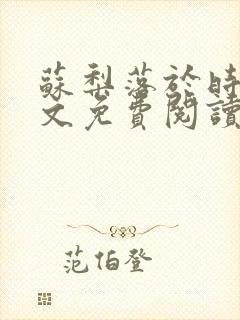 蘇梨落於時
文免費閱讀
范伯登